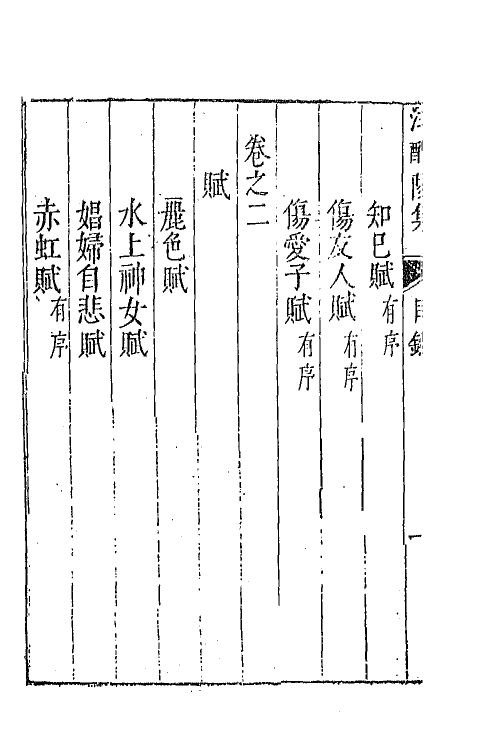 江醴陵集 目錄 一
知已賦有序
傷友人賦有序
傷愛子賦有序
卷之二
賦
麗色賦
水上神女賦
娼婦自悲賦
赤虹賦有序